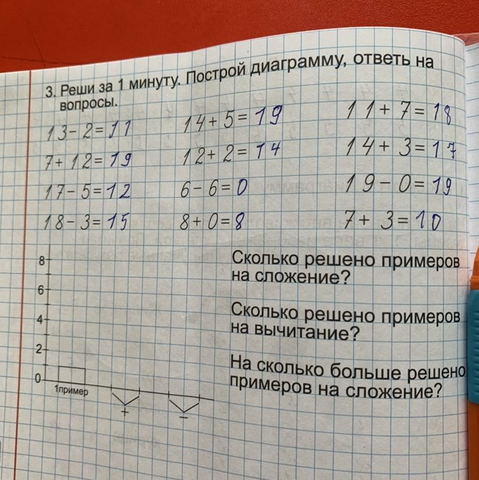 3. Реши за 1 минуту. Построй диаграмму, ответь на
вопросы.
13-2=11 14+5=19 11+7=18
7+12=19 12+2=14 14+3=17
17-5=12 6-6=0 19-0=19
18-3=15 8+0=8 7+3=10
8
6
4
2
0
1пример
+
−
Сколько решено примеров
на сложение?
Сколько решено примеров
на вычитание?
На сколько больше решено
примеров на сложение?